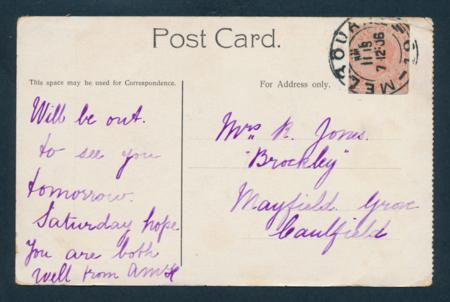 Post Card.
This space may be used for Correspondence.
For Address only.
Will be out.
to see you
tomorrow.
Saturday hope
you are both
well from
Mrs R. Jones.
"Brockley"
Mayfield Grove
Caulfield
11 15
7 · 12 · 06